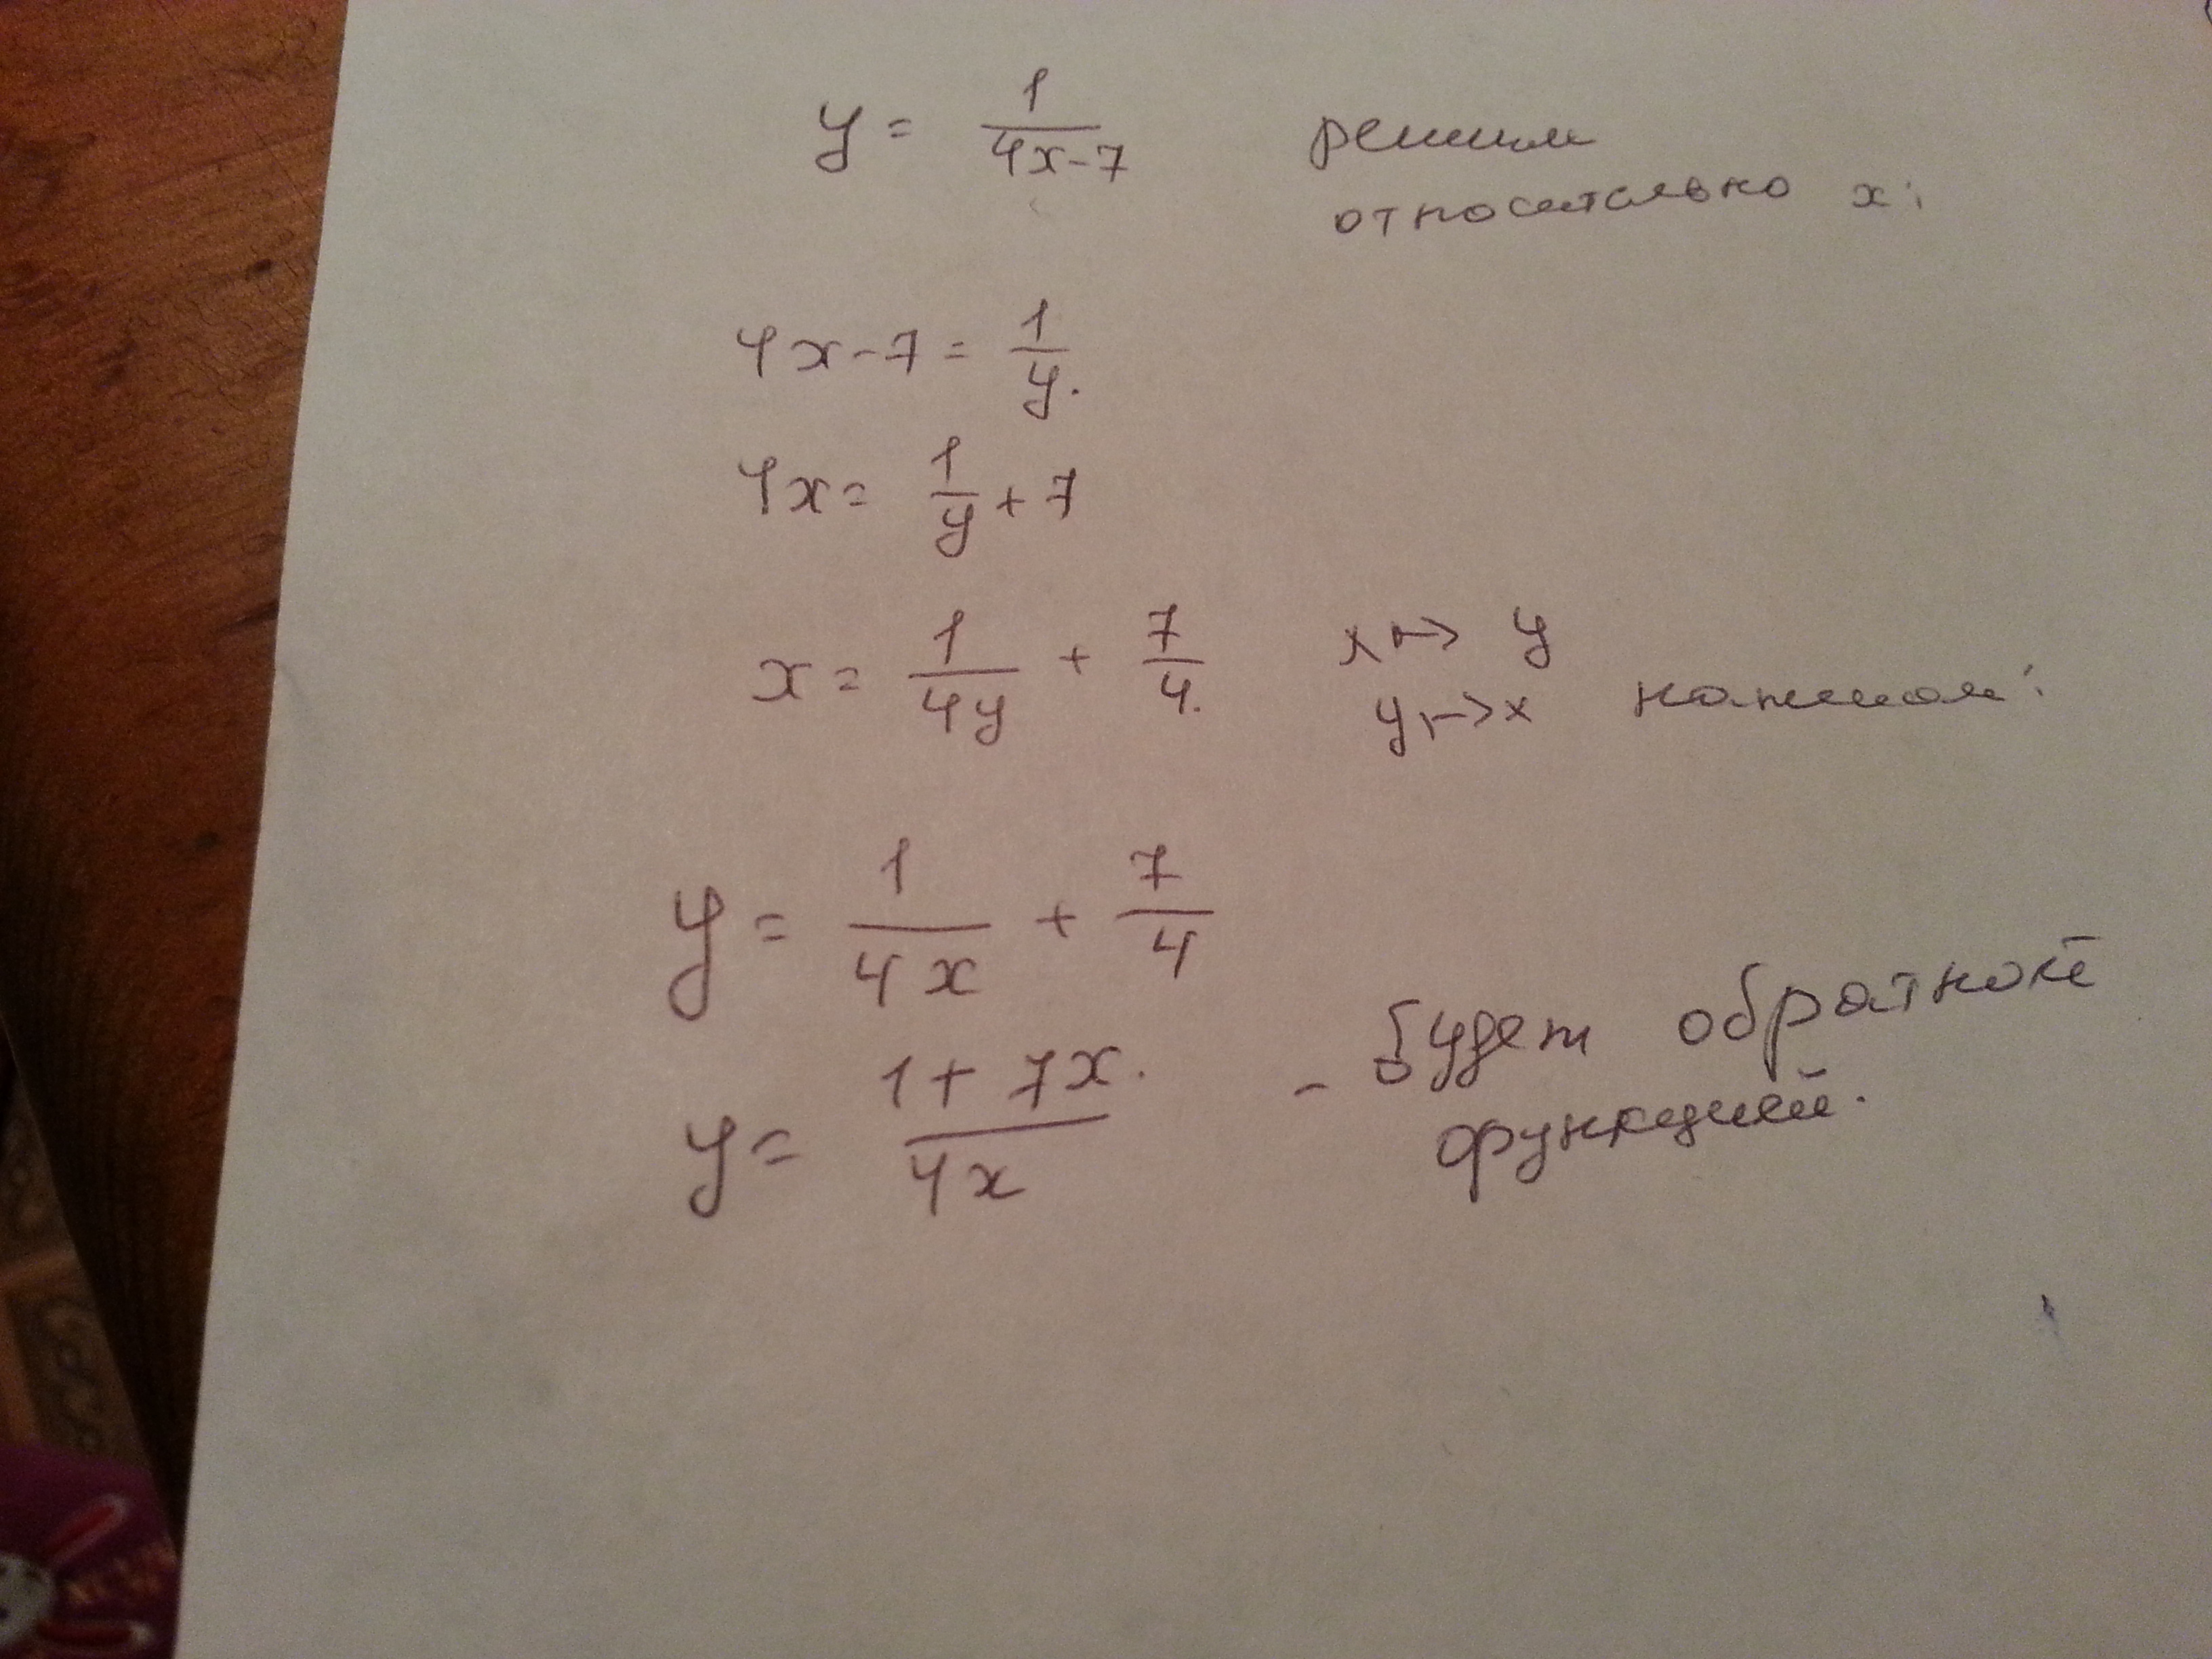 y = 1/(4x-7) решим
относительно x:
4x-7 = 1/y.
4x = 1/y + 7
x = 1/(4y) + 7/4. x ↦ y
y ↦ x
y = 1/(4x) + 7/4
y = (1+7x.)/(4x) - будет обратной
функцией.